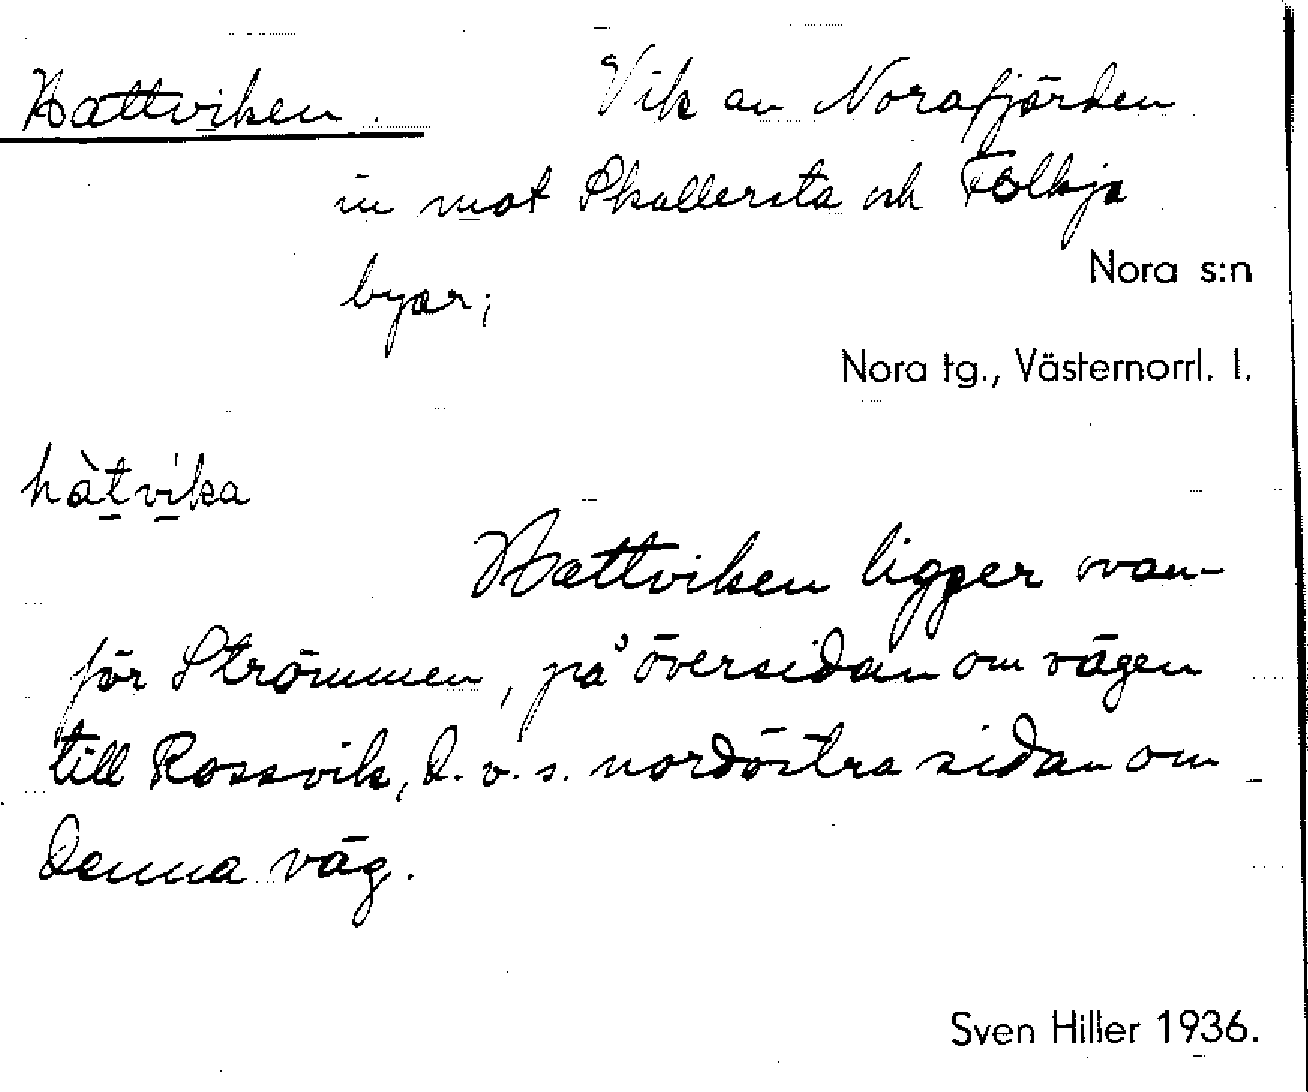 Hattviken. Vik av Norafjärden
in mot Skallersta och Folkja
byar;
Nora s:n
Nora tg., Västernorrl. l.
hàtvika
Hattviken ligger ovan-
för Strömmen, på översidan om vägen
till Rossvik, d.v.s. nordöstra sidan om
denna väg.
Sven Hiller 1936.